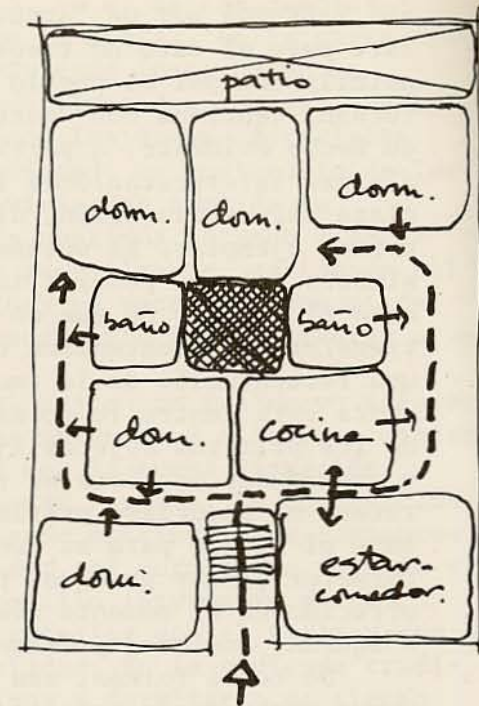 patio
dorm.
dorm.
dorm.
baño
baño
dorm.
cocina
dorm.
estar-
comedor.